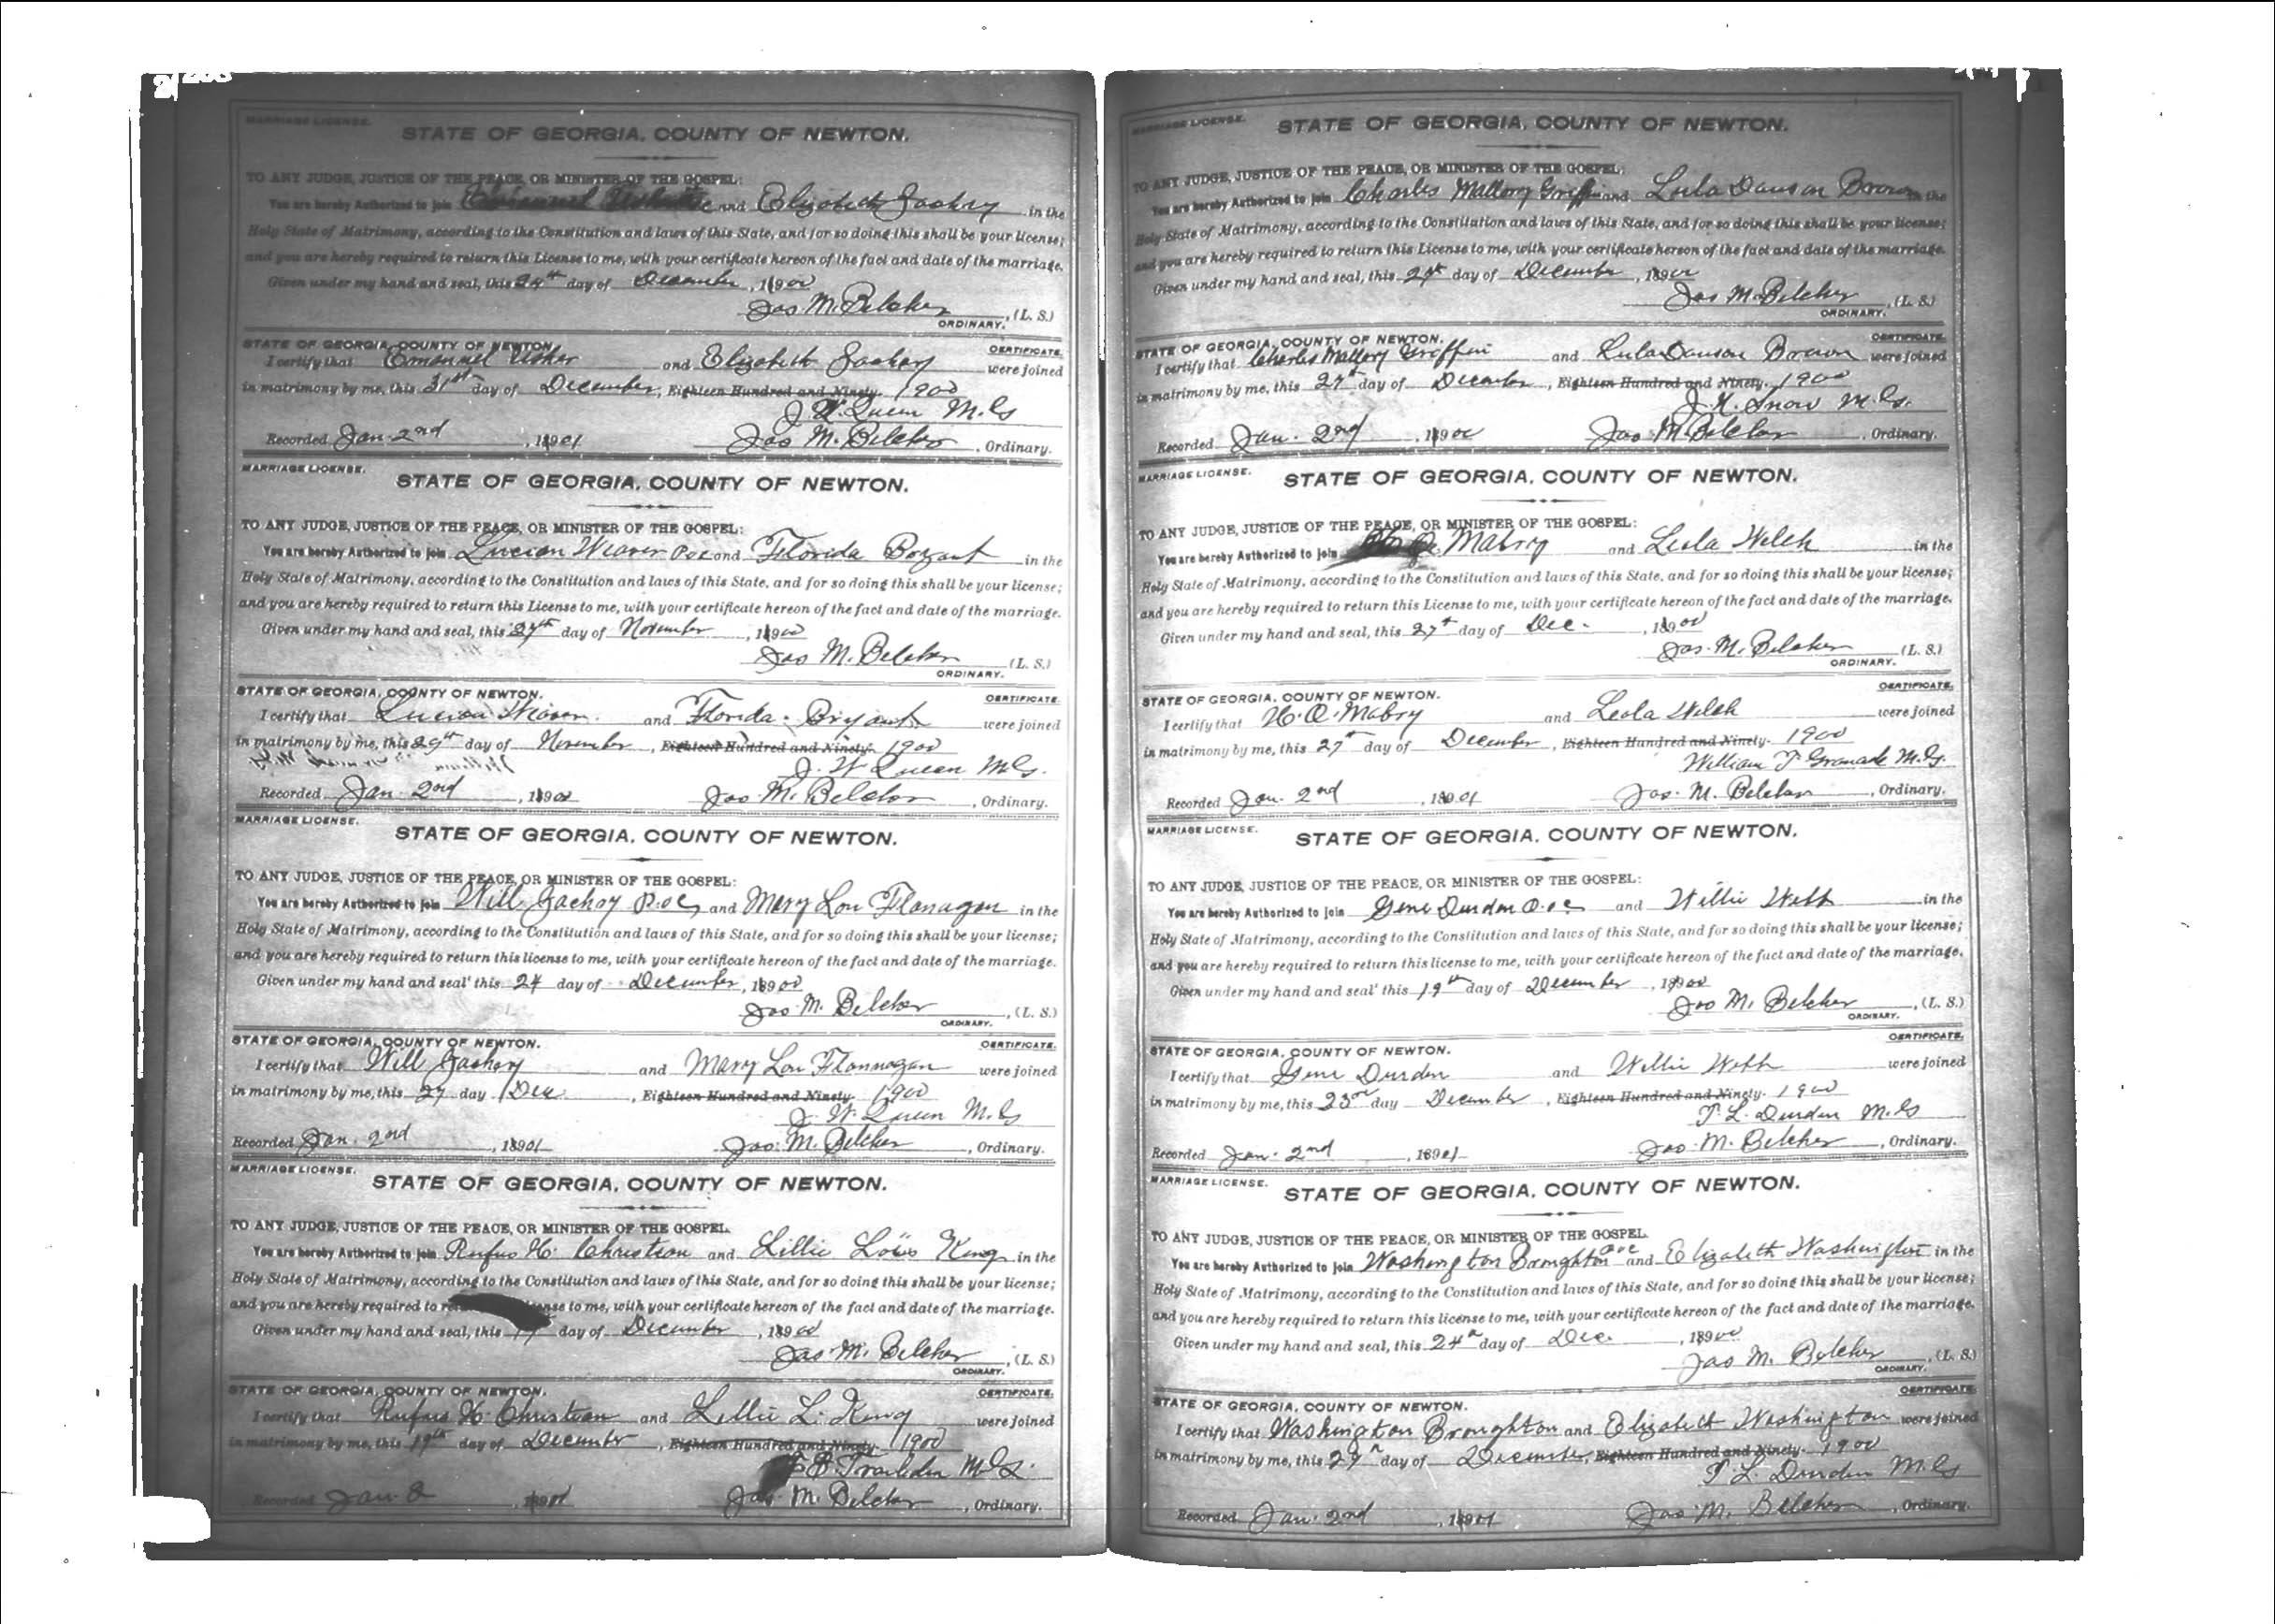 MARRIAGE LICENSE.
STATE OF GEORGIA, COUNTY OF NEWTON.
TO ANY JUDGE, JUSTICE OF THE PEACE, OR MINISTER OF THE GOSPEL:
You are hereby Authorized to join and Elizabeth Zachry in the
Holy State of Matrimony, according to the Constitution and laws of this State, and for so doing this shall be your license;
and you are hereby required to return this License to me, with your certificate hereon of the fact and date of the marriage.
Given under my hand and seal, this 24th day of December, 1900
Jas M. Belcher, (L. S.)
ORDINARY.
STATE OF GEORGIA, COUNTY OF NEWTON. CERTIFICATE.
I certify that Emanuel Usher and Elizabeth Zachry were joined
in matrimony by me, this 31st day of December, Eighteen Hundred and Ninety- 1900
J. W. Queen M.G
Recorded Jan. 2nd, 1901 Jas M. Belcher, Ordinary.
MARRIAGE LICENSE.
STATE OF GEORGIA, COUNTY OF NEWTON.
TO ANY JUDGE, JUSTICE OF THE PEACE, OR MINISTER OF THE GOSPEL:
You are hereby Authorized to join Lucian Weaver P.o.c and Florida Bryant in the
Holy State of Matrimony, according to the Constitution and laws of this State, and for so doing this shall be your license;
and you are hereby required to return this License to me, with your certificate hereon of the fact and date of the marriage.
Given under my hand and seal, this 27th day of November, 1900
Jas M. Belcher (L. S.)
ORDINARY.
STATE OF GEORGIA, COUNTY OF NEWTON. CERTIFICATE.
I certify that Lucian Weaver and Florida Bryant were joined
in matrimony by me, this 29th day of November, Eighteen Hundred and Ninety- 1900
J. W. Queen M.G.
Recorded Jan. 2nd, Jas M. Belcher, Ordinary.
MARRIAGE LICENSE.
STATE OF GEORGIA, COUNTY OF NEWTON.
TO ANY JUDGE, JUSTICE OF THE PEACE, OR MINISTER OF THE GOSPEL:
You are hereby Authorized to join Will Zachry P.o.c and Mary Lou Flanagan in the
Holy State of Matrimony, according to the Constitution and laws of this State, and for so doing this shall be your license;
and you are hereby required to return this license to me, with your certificate hereon of the fact and date of the marriage.
Given under my hand and seal' this 24 day of December, 1900
Jas. M. Belcher, (L. S.)
ORDINARY.
STATE OF GEORGIA, COUNTY OF NEWTON. CERTIFICATE.
I certify that Will Zachry and Mary Lou Flannagan were joined
in matrimony by me, this 27 day Dec, Eighteen Hundred and Ninety- 1900
J. W. Queen M.G
Recorded Jan. 2nd, 1901 Jas. M. Belcher, Ordinary.
MARRIAGE LICENSE.
STATE OF GEORGIA, COUNTY OF NEWTON.
TO ANY JUDGE, JUSTICE OF THE PEACE, OR MINISTER OF THE GOSPEL.
You are hereby Authorized to join Rufus H. Christian and Lillie Lois King in the
Holy State of Matrimony, according to the Constitution and laws of this State, and for so doing this shall be your license;
and you are hereby required to to me, with your certificate hereon of the fact and date of the marriage.
Given under my hand and seal, this day of December, 1900
Jas. M. Belcher, (L. S.)
ORDINARY.
STATE OF GEORGIA, COUNTY OF NEWTON. CERTIFICATE.
I certify that Rufus H. Christian and Lillie L. King were joined
in matrimony by me, this 19th day of December, Eighteen Hundred and Ninety- 1900
M.G.
Recorded Jan 2, 1901 Jas. M. Belcher, Ordinary.
MARRIAGE LICENSE.
STATE OF GEORGIA, COUNTY OF NEWTON.
TO ANY JUDGE, JUSTICE OF THE PEACE, OR MINISTER OF THE GOSPEL:
You are hereby Authorized to join Charles Mallory Griffin and Lula Dawson Brown in the
Holy State of Matrimony, according to the Constitution and laws of this State, and for so doing this shall be your license;
and you are hereby required to return this License to me, with your certificate hereon of the fact and date of the marriage.
Given under my hand and seal, this day of December, 1900
Jas M. Belcher, (L. S.)
ORDINARY.
STATE OF GEORGIA, COUNTY OF NEWTON. CERTIFICATE.
I certify that Charles Mallory Griffin and Lula Dawson Brown were joined
in matrimony by me, this 27th day of December, Eighteen Hundred and Ninety- 1900
J. H. Snow M.G.
Recorded Jan. 2nd, 1900 Jas M. Belcher, Ordinary.
MARRIAGE LICENSE.
STATE OF GEORGIA, COUNTY OF NEWTON.
TO ANY JUDGE, JUSTICE OF THE PEACE, OR MINISTER OF THE GOSPEL:
You are hereby Authorized to join Mabry and Leola Welch in the
Holy State of Matrimony, according to the Constitution and laws of this State, and for so doing this shall be your license;
and you are hereby required to return this License to me, with your certificate hereon of the fact and date of the marriage.
Given under my hand and seal, this 27th day of Dec., 1900
Jas. M. Belcher (L. S.)
ORDINARY.
STATE OF GEORGIA, COUNTY OF NEWTON. CERTIFICATE.
I certify that H. O. Mabry and Leola Welch were joined
in matrimony by me, this 27th day of December, Eighteen Hundred and Ninety- 1900
William T Granade M.G.
Recorded Jan. 2nd, 1901 Jas. M. Belcher, Ordinary.
MARRIAGE LICENSE.
STATE OF GEORGIA, COUNTY OF NEWTON.
TO ANY JUDGE, JUSTICE OF THE PEACE, OR MINISTER OF THE GOSPEL:
You are hereby Authorized to join Gene Durden P.o.c. and Willie Webb in the
Holy State of Matrimony, according to the Constitution and laws of this State, and for so doing this shall be your license;
and you are hereby required to return this license to me, with your certificate hereon of the fact and date of the marriage.
Given under my hand and seal' this 19th day of December, 1900
Jas M. Belcher, (L. S.)
ORDINARY.
STATE OF GEORGIA, COUNTY OF NEWTON. CERTIFICATE.
I certify that Gene Durden and Willie Webb were joined
in matrimony by me, this 23rd day December, Eighteen Hundred and Ninety- 1900
T. L. Durden M.G
Recorded Jan. 2nd, 1901 Jas. M. Belcher, Ordinary.
MARRIAGE LICENSE.
STATE OF GEORGIA, COUNTY OF NEWTON.
TO ANY JUDGE, JUSTICE OF THE PEACE, OR MINISTER OF THE GOSPEL.
You are hereby Authorized to join Washington Broughton poc and Elizabeth Washington in the
Holy State of Matrimony, according to the Constitution and laws of this State, and for so doing this shall be your license;
and you are hereby required to return this license to me, with your certificate hereon of the fact and date of the marriage.
Given under my hand and seal, this 24th day of Dec., 1900
Jas M. Belcher, (L. S.)
ORDINARY.
STATE OF GEORGIA, COUNTY OF NEWTON. CERTIFICATE.
I certify that Washington Broughton and Elizabeth Washington were joined
in matrimony by me, this 27th day of December, Eighteen Hundred and Ninety- 1900
T. L. Durden M.G
Recorded Jan. 2nd, 1901 Jas. M. Belcher, Ordinary.